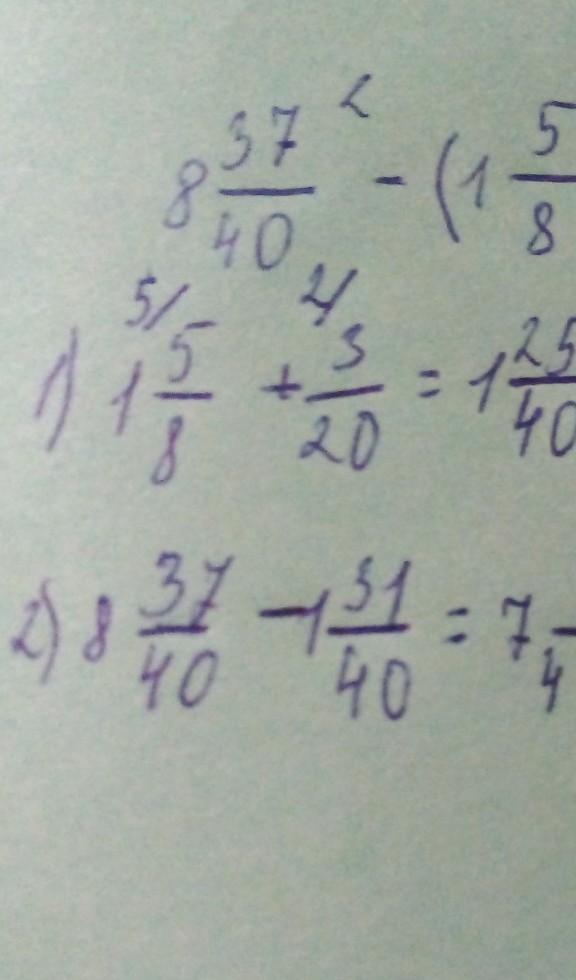 8 37/40 2 - (1 5/8
1) 1 5/8 5/ + 3/20 2/ = 1 25/40
2) 8 37/40 - 1 31/40 = 7 /4